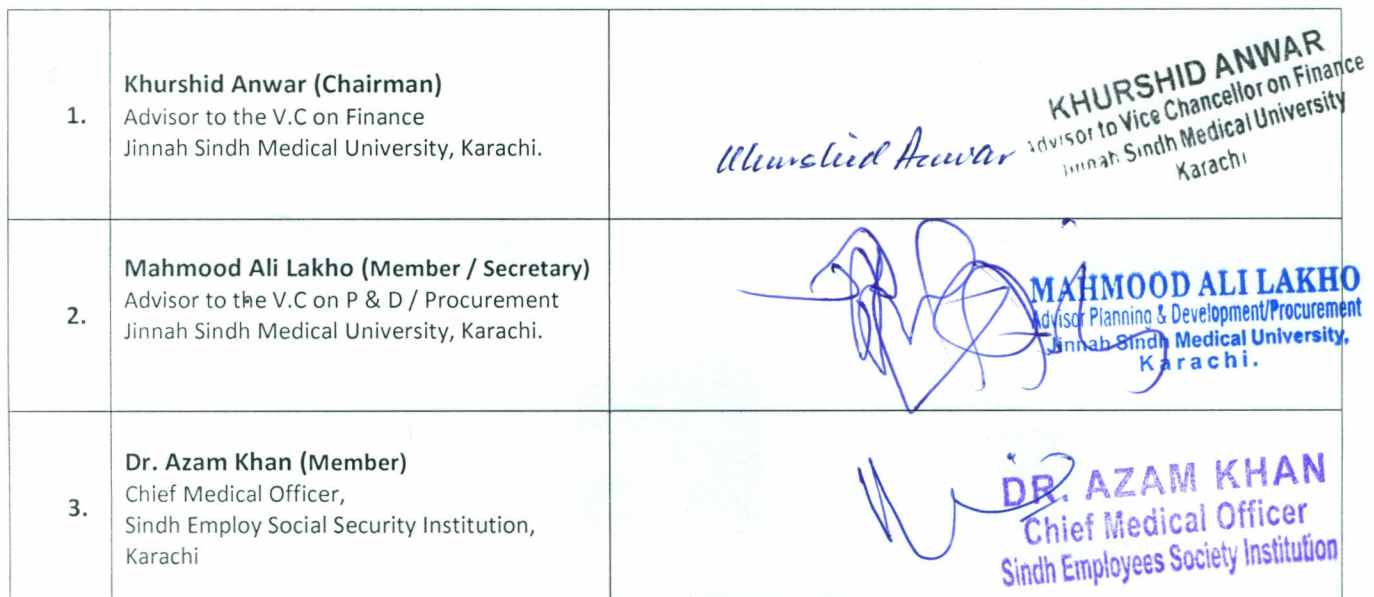 1.
Khurshid Anwar (Chairman)
Advisor to the V.C on Finance
Jinnah Sindh Medical University, Karachi.
Khurshid Anwar
KHURSHID ANWAR
Advisor to Vice Chancellor on Finance
Jinnah Sindh Medical University
Karachi
2.
Mahmood Ali Lakho (Member / Secretary)
Advisor to the V.C on P & D / Procurement
Jinnah Sindh Medical University, Karachi.
MAHMOOD ALI LAKHO
Advisor Planning & Development/Procurement
Jinnah Sindh Medical University,
Karachi.
3.
Dr. Azam Khan (Member)
Chief Medical Officer,
Sindh Employ Social Security Institution,
Karachi
DR. AZAM KHAN
Chief Medical Officer
Sindh Employees Society Institution